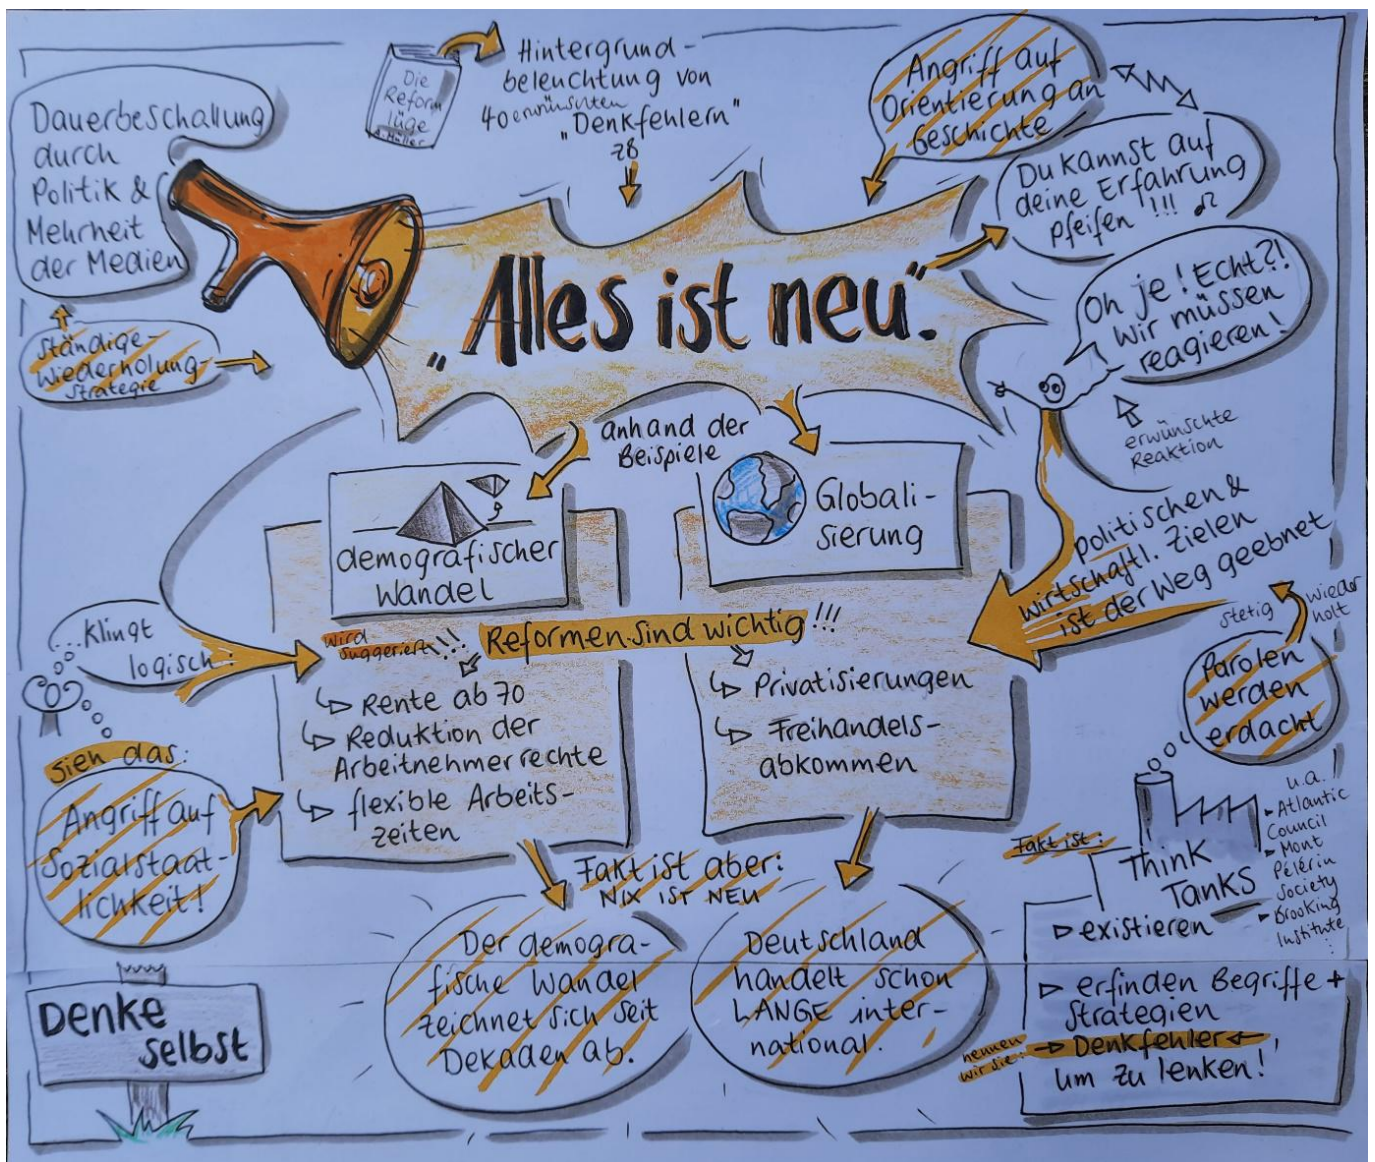 Die
Reform
lüge
A. Müller
Hintergrund-
beleuchtung von
40 erwünschten
"Denkfehlern"
zB
Angriff auf
Orientierung an
Geschichte
Dauerbeschallung
durch
Politik &
Mehrheit
der Medien
Ständige-
Wiederholung-
strategie
"Alles ist neu".
Du kannst auf
deine Erfahrung
pfeifen !!!
Oh je! Echt?!
Wir müssen
reagieren!
erwünschte
Reaktion
anhand der
Beispiele
demografischer
Wandel
Globali-
sierung
politischen &
wirtschaftl. Zielen
ist der Weg geebnet
...klingt
logisch:
wird
suggeriert!!!
Reformen sind wichtig !!!
Rente ab 70
Reduktion der
Arbeitnehmerrechte
flexible Arbeits-
zeiten
Privatisierungen
Freihandels-
abkommen
sieh das:
Angriff auf
Sozialstaat-
lichkeit!
Fakt ist aber:
NIX IST NEU
Der demogra-
fische Wandel
zeichnet sich seit
Dekaden ab.
Deutschland
handelt schon
LANGE inter-
national.
stetig
wieder
holt
Parolen
werden
erdacht
Fakt ist:
Think
Tanks
u.a.
Atlantic
Council
Mont
Pélérin
Society
Brooking
Institute
existieren
erfinden Begriffe +
Strategien
nennen
wir sie:
Denkfehler
um zu lenken!
Denke
selbst